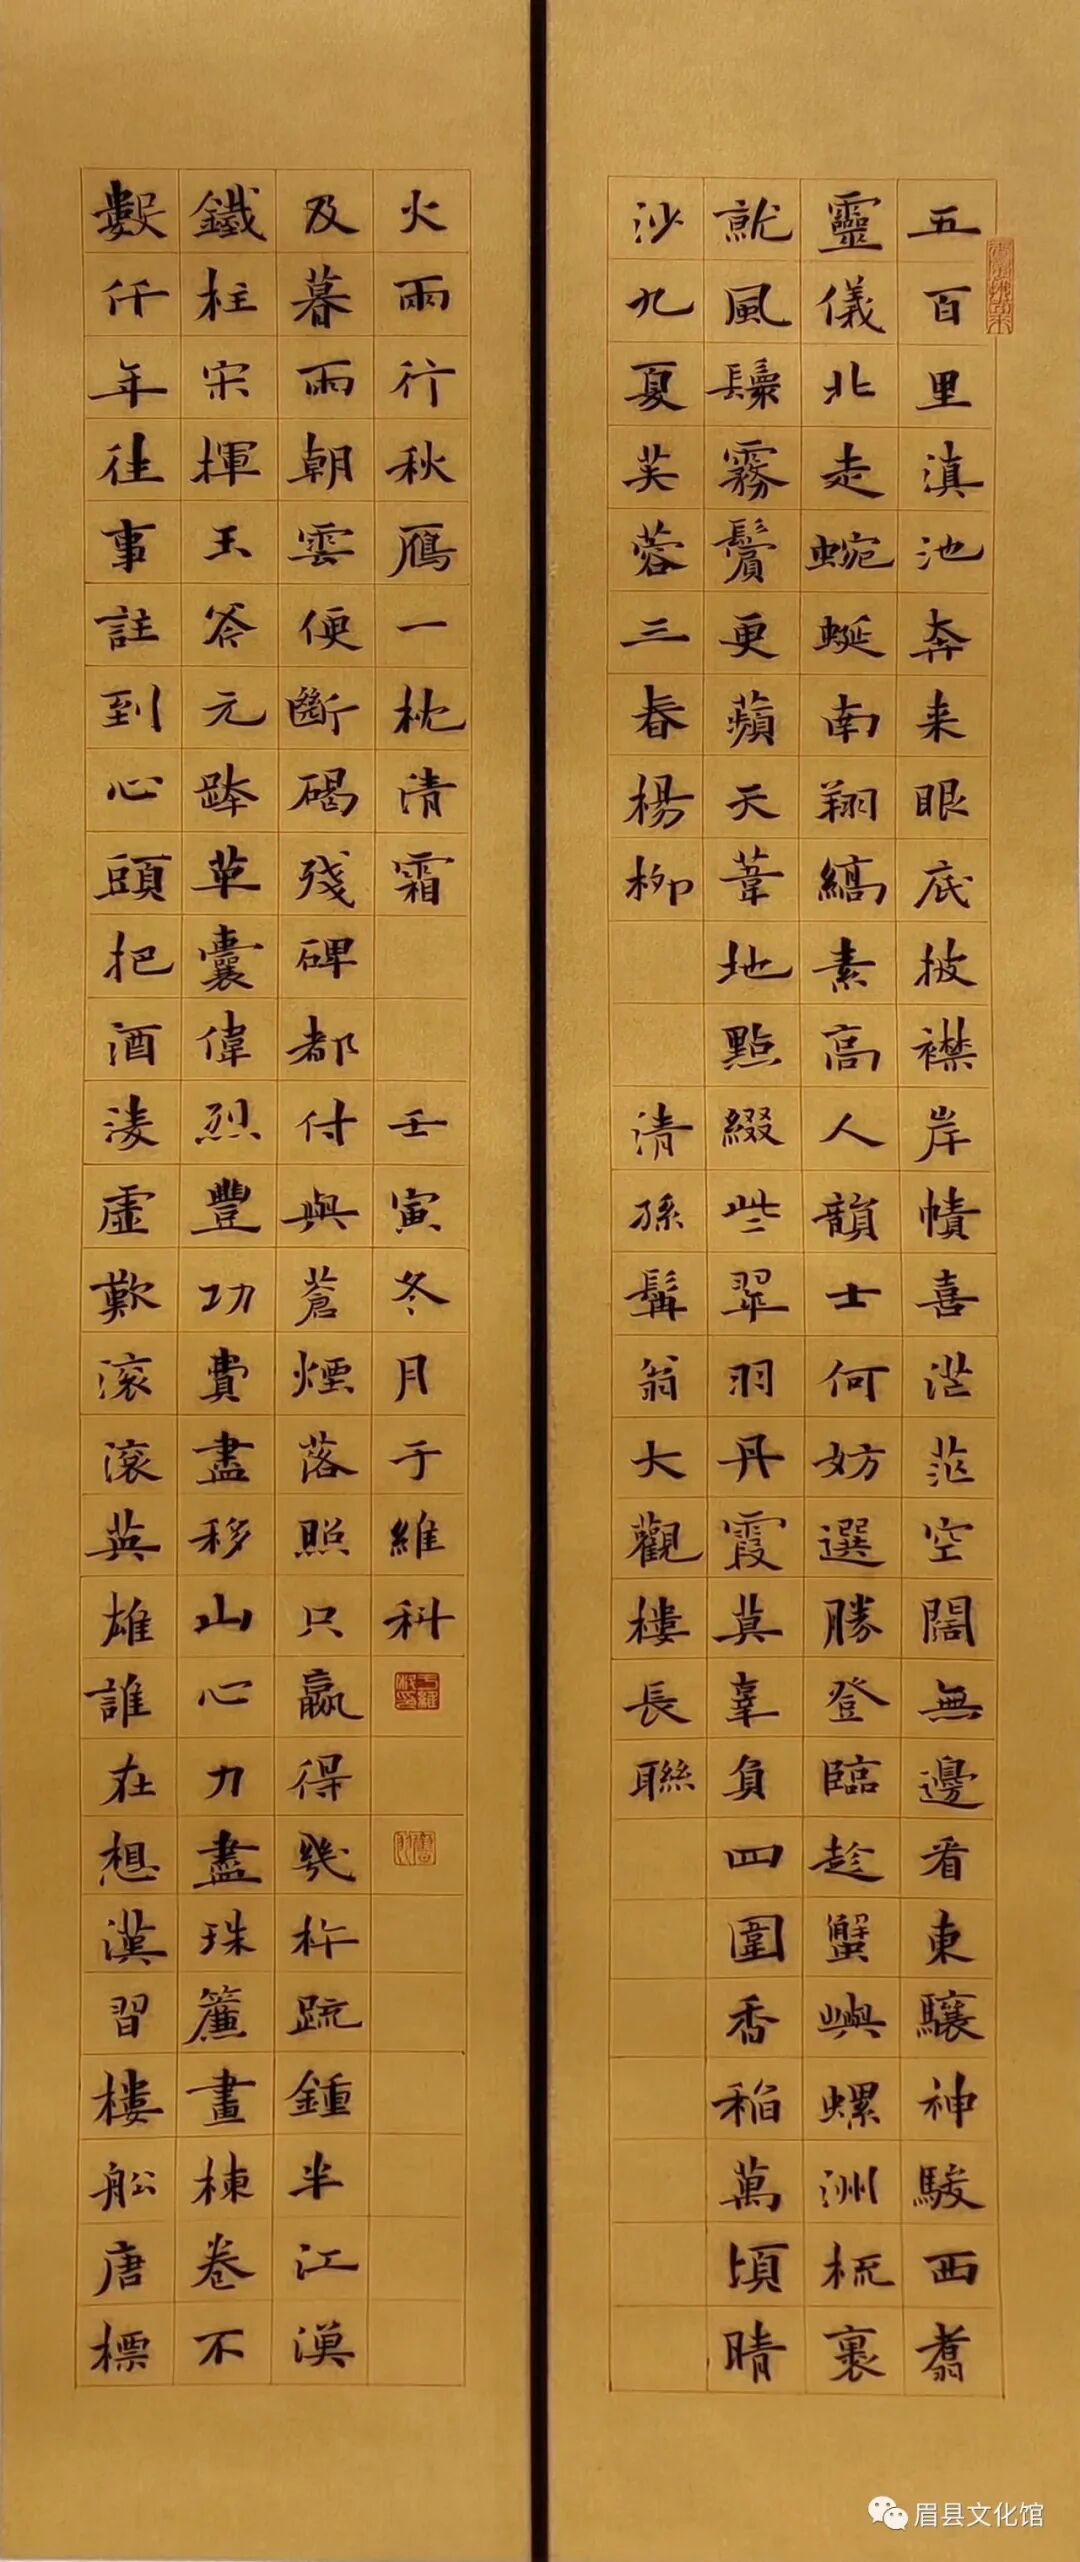 五百里滇池奔来眼底披襟岸幘喜茫茫空闊無邊看東驤神駿西翥
靈儀北走蜿蜒南翔縞素高人韻士何妨選勝登臨趁蟹嶼螺洲梳裹
就風鬟霧鬢更蘋天葦地點綴些翠羽丹霞莫辜負四圍香稻萬頃晴
沙九夏芙蓉三春楊柳 清孫髯翁大觀樓長聯
數仟年往事註到心頭把酒淩虛歎滾滾英雄誰在想漢習樓船唐標
鐵柱宋揮玉斧元跨革囊偉烈豐功費盡移山心力盡珠簾畫棟卷不
及暮雨朝雲便斷碣殘碑都付與蒼煙落照只贏得幾杵疏鍾半江漁
火兩行秋雁一枕清霜 壬寅冬月于維科
眉县文化馆